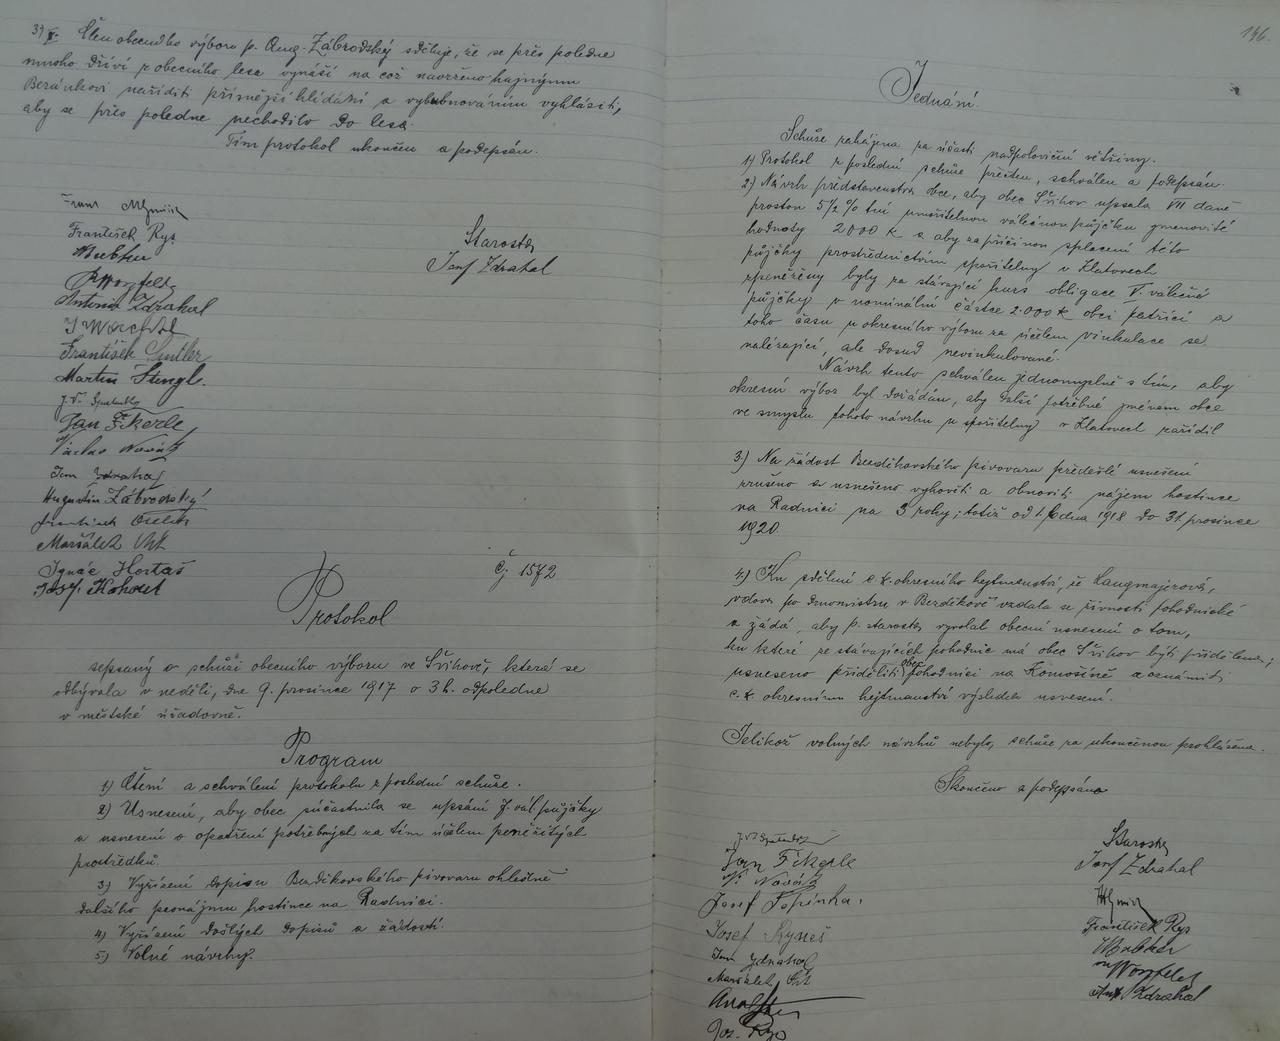 3) Člen obecního výboru p. Aug. Zábrodský sděluje, že se přes poledne
mnoho dříví z obecního lesa vynáší na což navrženo hajnýmu
Beránkovi naříditi přísnější hlídání a vybubnováním vyhlásiti,
aby se přes poledne nechodilo do lesa.
Tím protokol ukončen a podepsán.
František Rys
Antonín Zdrahal
František
Martin Stengl.
Jan Fikerle
Václav Novák
Zdrahal
Augustin Zábrodský
František
Maršálek
Ignác Hortaš
Josef
Starosta
Josef Zdrahal
Čj 1572
Protokol
sepsaný o schůzi obecního výboru ve Švihově, která se
odbývala v neděli, dne 9. prosince 1917 o 3 h. odpoledne
v městské úřadovně.
Program
1) Čtení a schválení protokolu z poslední schůze.
2) Usnesení, aby obec súčastnila se upsání 7. vál. půjčky
a usnesení o opatření potřebných za tím účelem peněžitých
prostředků.
3) Vyřízení dopisu Bezděkovského pivovaru ohledně
dalšího pronájmu hostince na Radnici.
4) Vyřízení došlých dopisů a žádostí.
5) Volné návrhy.
146.
Jednání.
Schůze zahájena za účasti nadpoloviční většiny.
1) Protokol z poslední schůze přečten, schválen a podepsán.
2) Návrh představenstva obce, aby obec Švihov upsala VII daně
prostou 5½ % tní umořitelnou válečnou půjčku jmenovité
hodnoty 2000 K a aby za příčinou splacení této
půjčky prostřednictvím spořitelny v Klatovech
zpeněženy byly za stávající kurs obligace V. válečné
půjčky v nominální částce 2.000 K obci patřící a
toho času u okresního výboru za účelem vinkulace se
nalézající, ale dosud nevinkulované.
Návrh tento schválen jednomyslně s tím, aby
okresní výbor byl dožádán, aby další potřebné jménem obce
ve smyslu tohoto návrhu u spořitelny v Klatovech zařídil
3.) Na žádost Bezděkovského pivovaru předešlé usnešení
zrušeno a usnešeno vyhověti a obnoviti nájem hostince
na Radnici na 3 roky; totiž od 1. ledna 1918 do 31. prosince
1920.
4.) Ku sdělení c. k. okresního hejtmanství, že Langmajerová,
vdova po v Bezděkově vzdala se živnosti pohodnické
a žádá, aby p. starosta vyvolal obecní usnesení o tom,
ku které ze stávajících pohodnic má obec Švihov býti přidělena;
usneseno přiděliti obec pohodnici na Komošíně a oznámiti
c. k. okresnímu hejtmanství výsledek usnesení.
Jelikož volných návrhů nebylo, schůze za ukončenou prohlášena.
Skončeno a podepsáno
Jan Fikerle
Novák
Josef
Josef Ryneš
Zdrahal
Maršálek
Jos. Rys
Starosta
Josef Zdrahal
František Rys
Ant. Zdrahal